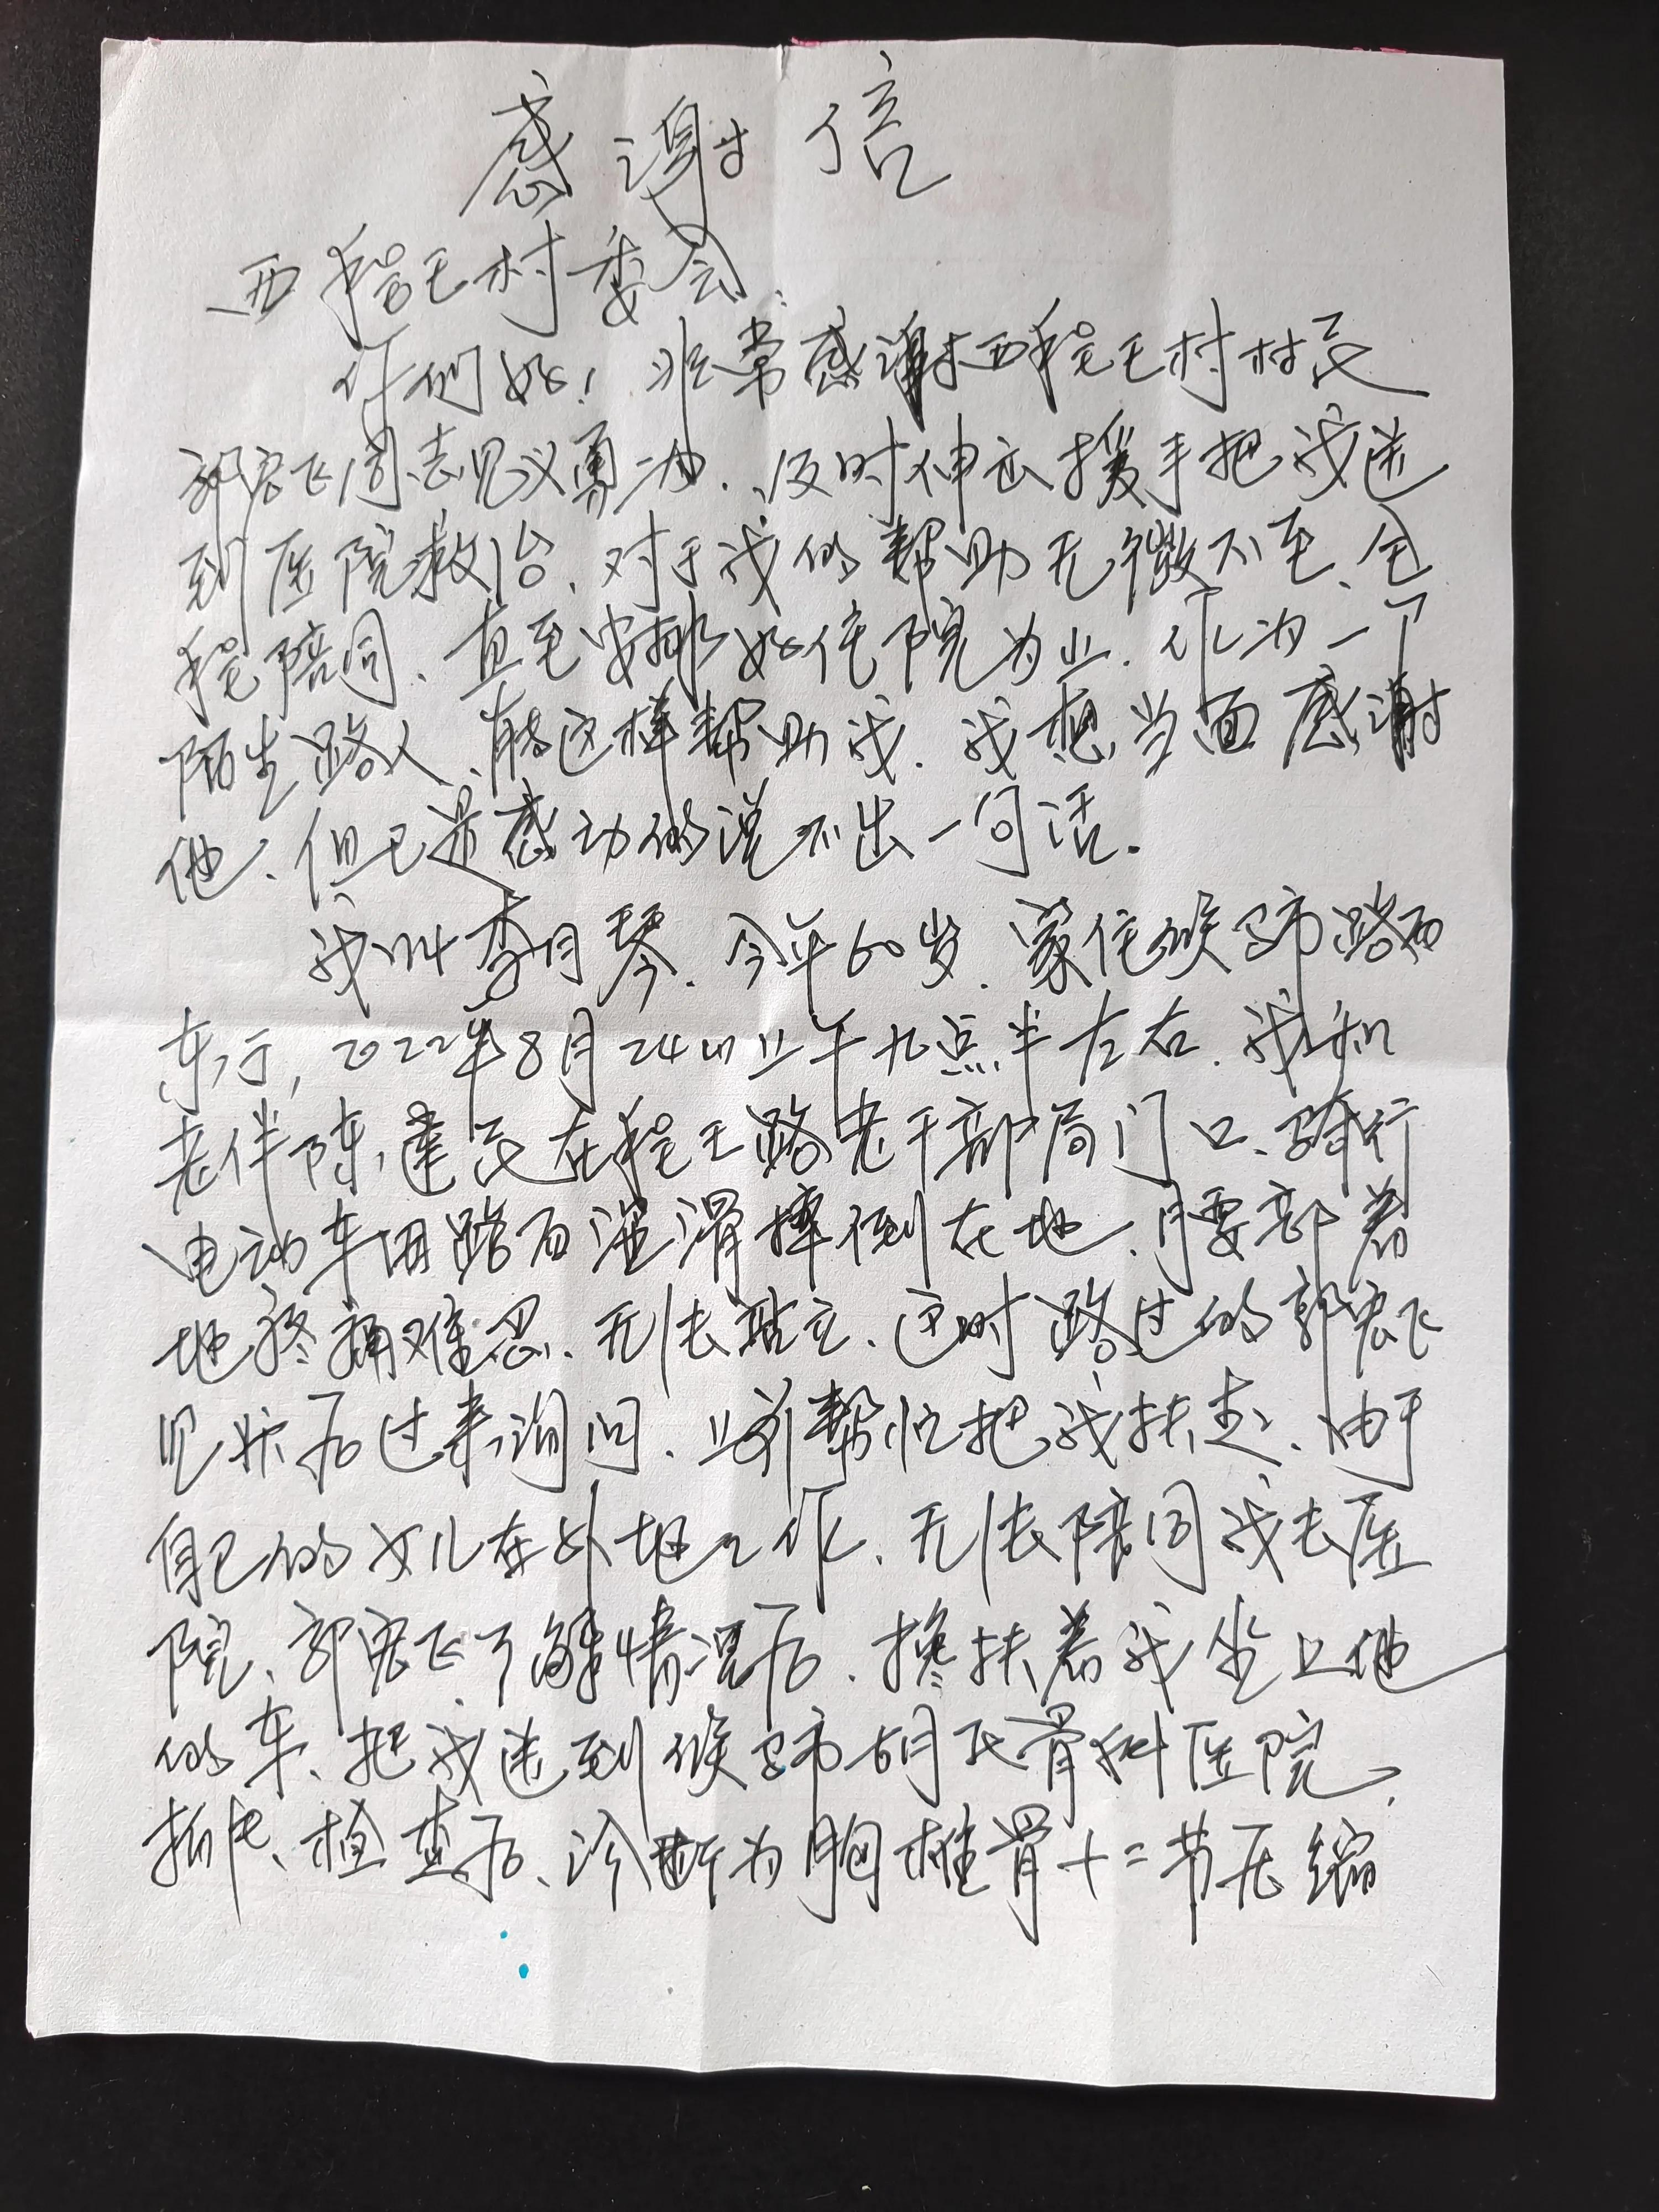 感谢信
西程王村委会：
你们好！非常感谢西程王村村民
郭宏飞同志见义勇为.及时伸出援手把我送
到医院救治、对于我的帮助无微不至、全
程陪同、直至安排好住院为止.作为一个
陌生路人、能这样帮助我.我想当面感谢
他、但已是感动的说不出一句话.
我叫李月琴.今年60岁.家住侯马市路西
东行,2022年8月24日上午九点半左右.我和
老伴陈建民在程王路老干部局门口、骑行
电动车因路面湿滑摔倒在地、腰部着
地疼痛难忍、无法站立、这时路过的郭宏飞
见状后过来询问、并帮忙把我扶起、由于
自己的女儿在外地工作、无法陪同我去医
院、郭宏飞了解情况后、搀扶着我坐上他
的车、把我送到侯马市胡氏骨科医院、
拍片、检查后、诊断为胸椎骨十二节压缩